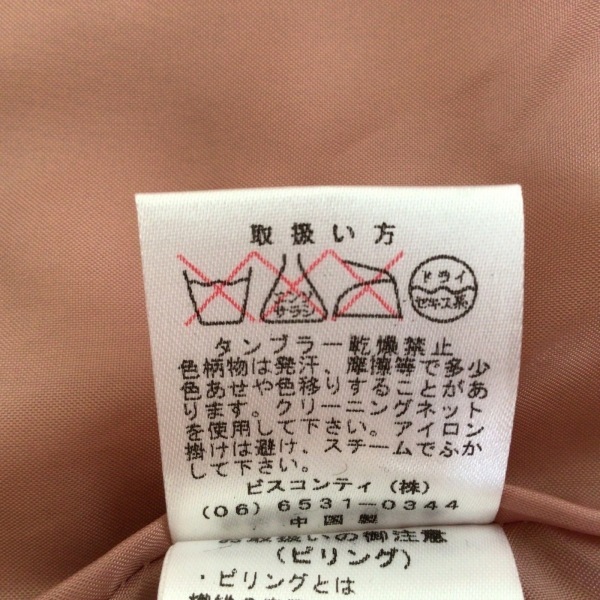 取扱い方
エンソ
サラシ
ドライ
セキユ系
タンブラー乾燥禁止
色柄物は発汗、摩擦等で多少
色あせや色移りすることがあ
ります。クリーニングネット
を使用して下さい。アイロン
掛けは避け、スチームでふか
して下さい。
ビスコンティ(株)
(06)6531-0344
中国製
お取扱いの御注意
(ピリング)
・ピリングとは